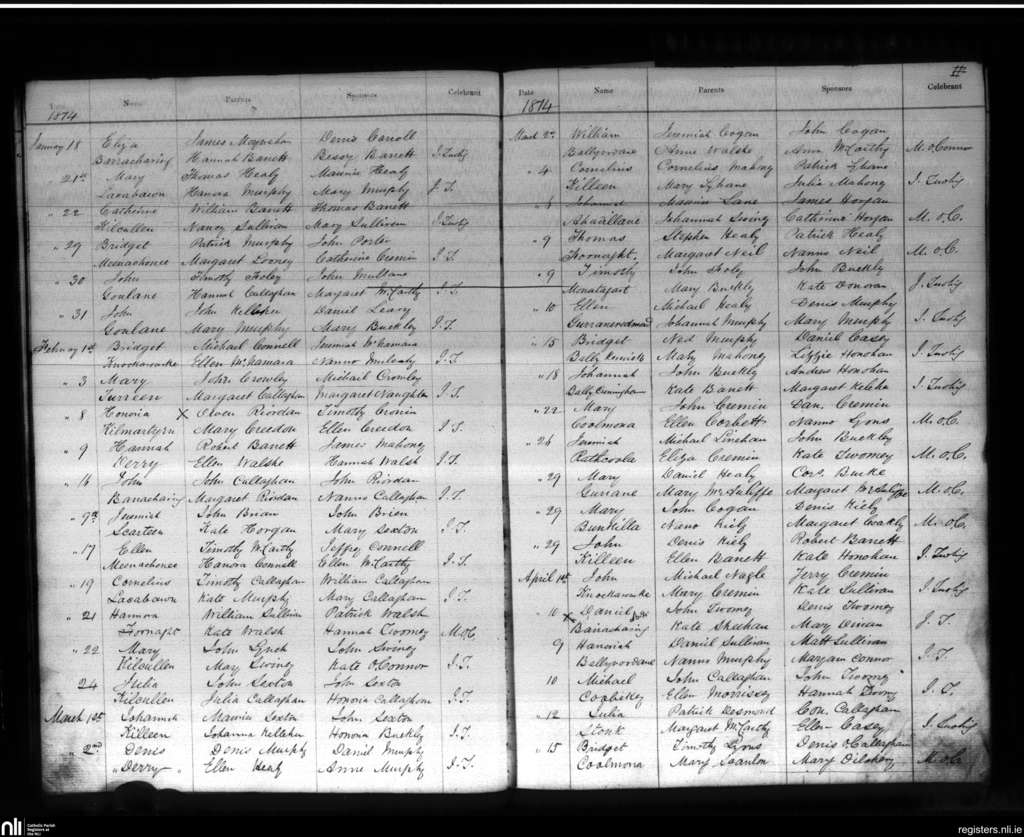 Date Name Parents Sponsors Celebrant
1874
January 18 Eliza James Moynihan Denis Carroll
Barracharing Hannah Barrett Bessy Barrett J. Tuohy
" 21st Mary Thomas Healy Maurice Healy
Lacabawn Hanora Murphy Mary Murphy J. T.
" 22 Catherine William Barrett Thomas Barrett
Kilcullen Nancy Sullivan Mary Sullivan J. Tuohy
" 29 Bridget Patrick Murphy John Porter
Meenachonee Margaret Looney Catherine Cremin J. T.
" 30 John Timothy Foley John Mullane
Goulane Hannah Callaghan Margaret McCarthy J. T.
" 31 John John Kelleher Daniel Leary
Goulane Mary Murphy Mary Buckley J. T.
February 1st Bridget Michael Connell Jeremiah McNamara
Knockavouke Ellen McNamara Nanno J. T.
" 3 Mary John Crowley Michael Crowley
Turreen Margaret Callaghan Margaret Naughten J. T.
" 8 Honoria X Owen Riordan Timothy Cronin
Kilmartyrn Mary Creedon Ellen Creedon J. T.
" 9 Hannah Robert Barrett James Mahony
Derry Ellen Walshe Hannah Walsh J. T.
" 16 John John Callaghan John Riordan
Banacharing Margaret Riordan Nanno Callaghan J. T.
" 9th Jeremiah John Brian John Brien
Scarteen Kate Horgan Mary Sexton J. T.
" 17 Ellen Timothy McCarthy Jeffrey Connell
Meenachonee Hanora Connell Ellen McCarthy J. T.
" 19 Cornelius Timothy Callaghan William Callaghan
Lacabawn Kate Murphy Mary Callaghan J. T.
" 21 Hannora William Sullivan Patrick Walsh
Fornaght Kate Walsh Hannah Twomey M. oC.
" 22 Mary John Lynch John Swiney
Kilcullen Mary Swiney Kate O'Connor J. T.
24 Julia John Sexton John Sexton
Kilcullen Julia Callaghan Honora Callaghan J. T.
March 1st Johannah Maurice Sexton John Sexton
Killeen Johanna Kelleher Honora Buckley J. T.
" 2nd Denis Denis Murphy Daniel Murphy
"Derry" Ellen Healy Anne Murphy J. T.
11
Date Name Parents Sponsors Celebrant
1874
March 2nd William Jeremiah Cogan John Cogan
Ballyvodane Anne Walshe Ann McCarthy M. oConnor
" 4 Cornelius Cornelius Mahony Patrick Lyhane
Killeen Mary Lyhane Julia Mahony J. Tuohy
" 8 Johannah Maurice Lane James Horgan
Ahadillane Johannah Swiney Catherine Horgan M. o C.
" 9 Thomas Stephen Healy Patrick Healy
Foornaght. Margaret Neil Nanno Neil M. o C.
" 9 Timothy John Foley John Buckley
Monataggart Mary Buckley Kate Donovan J. Tuohy
" 10 Ellen Michael Healy Denis Murphy
Johannah Murphy Mary Murphy J. Tuohy
" 15 Bridget Ned Murphy Daniel Casey
Mary Mahony Lizzie Honohan J. Tuohy
" 18 Johannah John Buckley Andrew Honohan
Ballycunningham Kate Barrett Margaret Keleher J. Tuohy
" 22 Mary John Cremin Dan. Cremin
Coolmona Ellen Corbett Nanno Lyons M. oC.
" 26 Jeremiah Michael Linehan John Buckley
Rathcoola Eliza Cremin Kate Twomey M. oC.
" 29 Mary Daniel Healy Cor. Burke
Gurrane Mary McAuliffe Margaret McAuliffe M. oC.
" 29 Mary John Cogan Denis Kiely
Bunkilla Nano Kiely Margaret Coakley M. oC.
" 29 John Denis Kiely Robert Barrett
Killeen Ellen Barrett Kate Honohan J. Tuohy
April 1st John Michael Nagle Jerry Cremin
Knockavouke Mary Cremin Kate Sullivan J. Tuohy
" 10 X Daniel John Twomey Denis Twomey
Banacharing Kate Sheehan Mary Dineen J. T.
9 Hanorah Daniel Sullivan Matt Sullivan
Ballyvordane Nanno Murphy Maryan Connor J. T.
10 Michael John Callaghan John Twomey
Ellen Morrissey Hannah Twomy J. T.
" 12 Julia Patrick Desmond Con. Callaghan
Stonk Margaret McCarthy Ellen Casey J. Tuohy
" 15 Bridget Timothy Lyons Denis oCallaghan
Coolmona Mary Scanlon Mary M. oC
nli Catholic Parish Registers at the NLI
registers.nli.ie